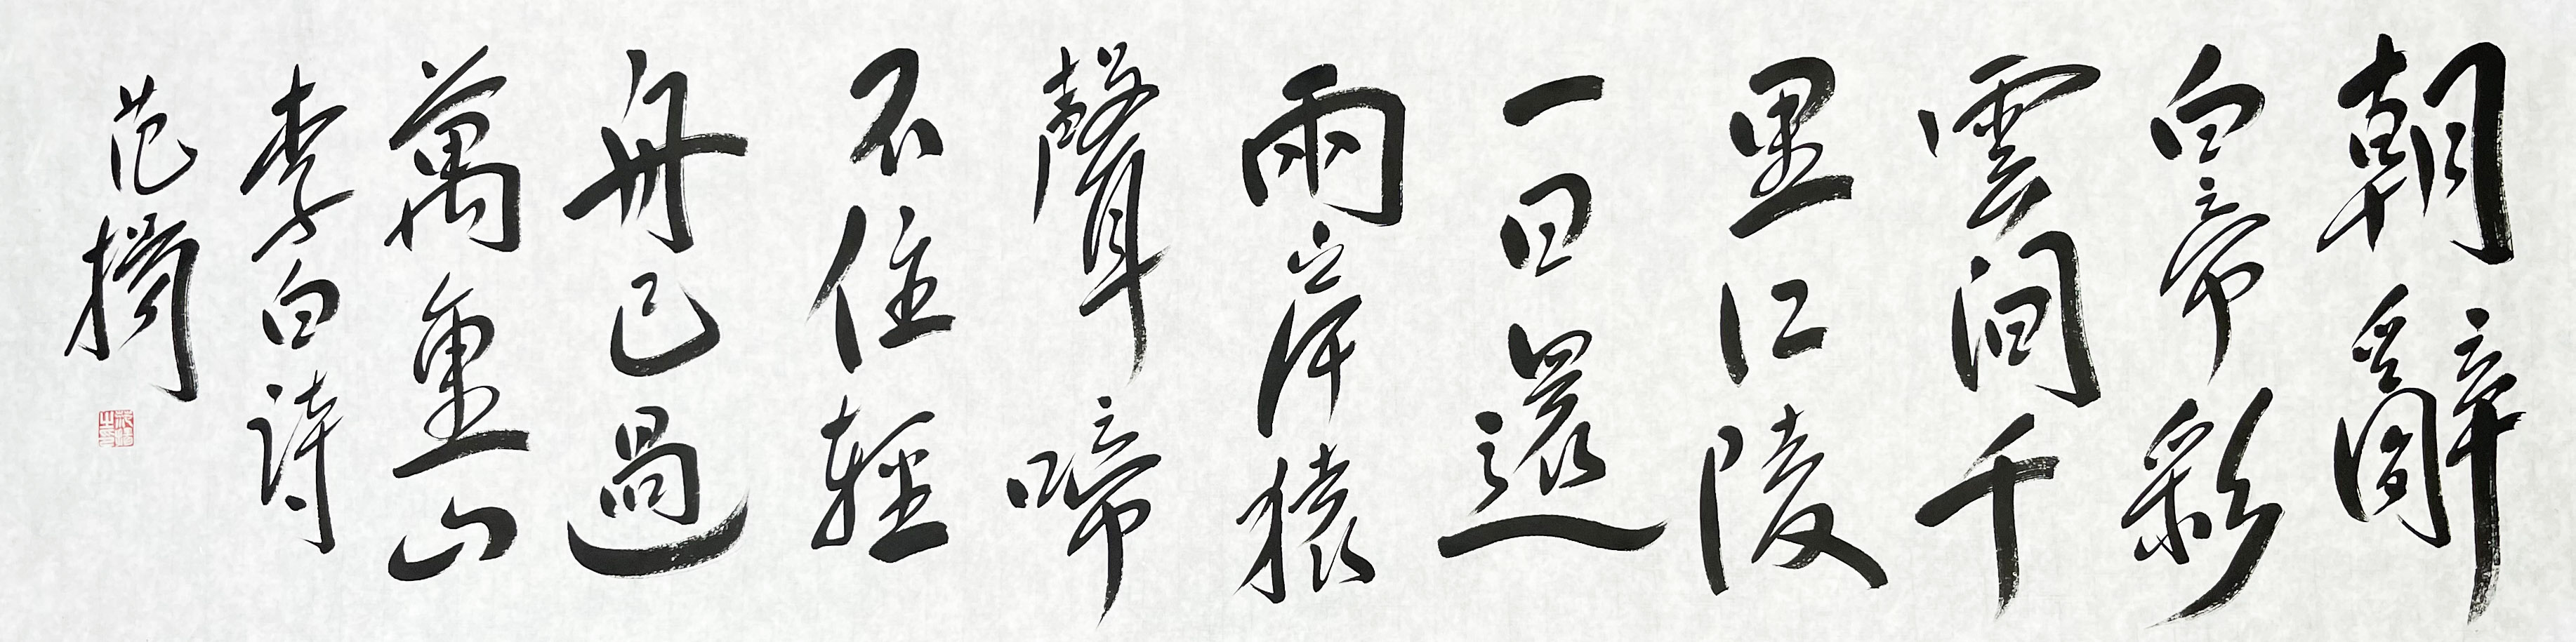 朝辭
白帝彩
雲間千
里江陵
一日還
兩岸猿
聲啼
不住輕
舟已過
萬重山
李白詩
范